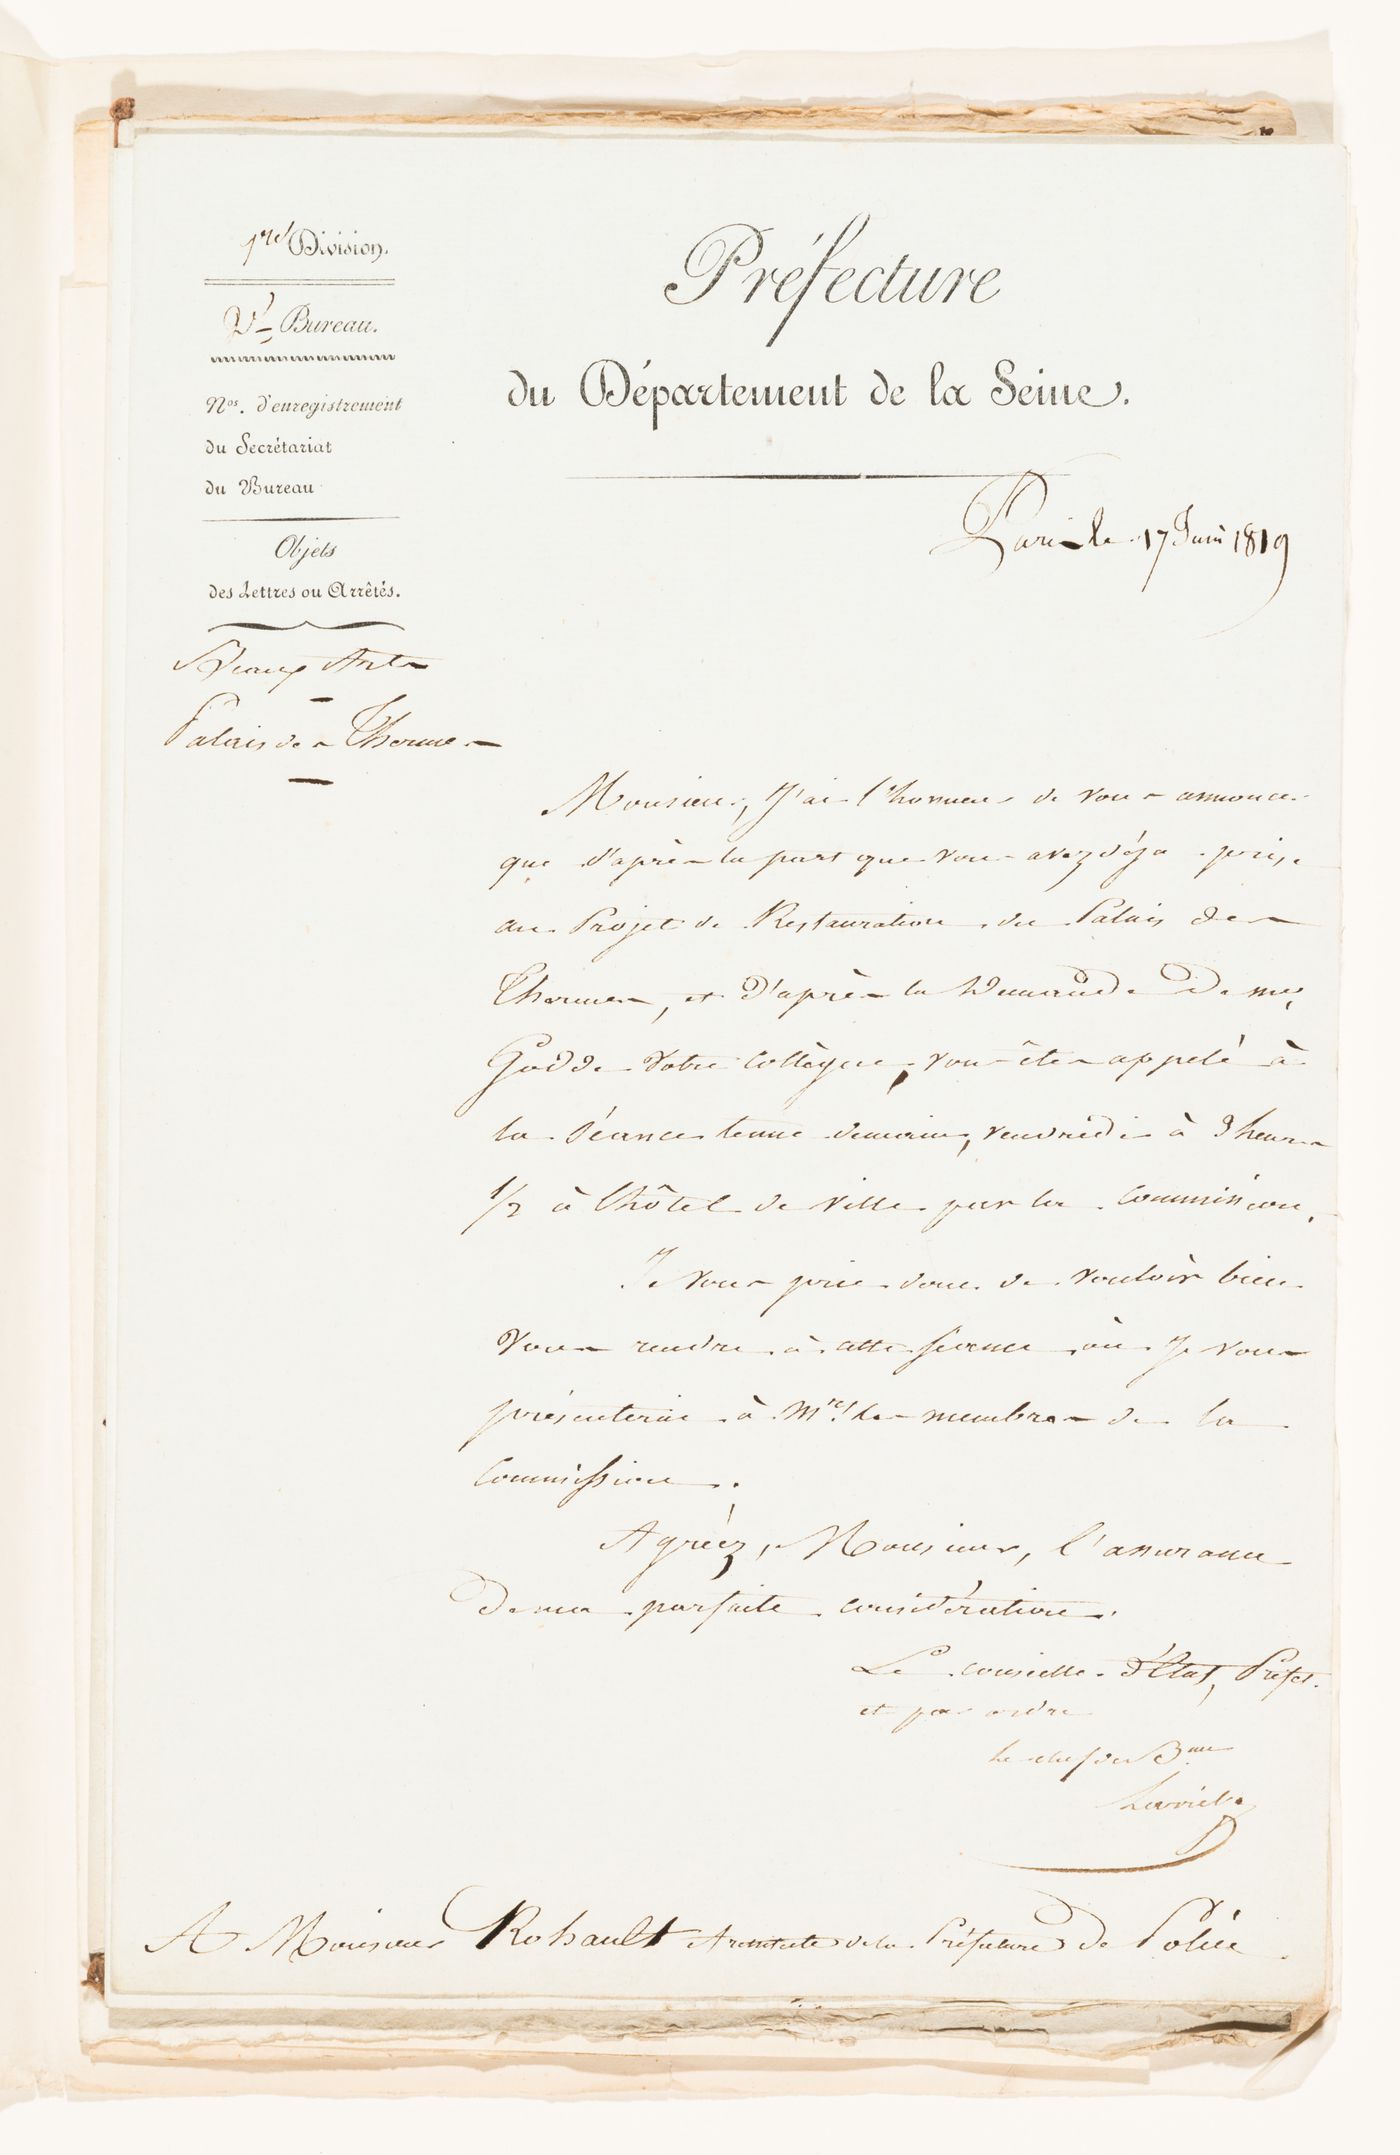 1re Division.
Préfecture
Bureau.
du Département de la Seine.
Nos. d'enregistrement
du Secrétariat
du Bureau
Paris le 17 Juin 1819
Objets
des Lettres ou Arrêtés.
Beaux Arts
Palais des Thermes
Monsieur, J'ai l'honneur de vous annoncer
que d'après la part que vous avez déja prise
au Projet de Restauration du Palais des
Thermes, et d'après la Demande de Mr.
Godde votre collègue, vous êtes appelé à
la Séance tenue demain, vendredi à 3 heures
1/2 à l'hôtel de ville par la Commission.
Je vous prie donc de vouloir bien
vous rendre à cette séance où je vous
présenterai à Mrs. les membres de la
Commission.
Agréez, Monsieur, l'assurance
de ma parfaite considération.
Le Conseiller d'Etat, Préfet.
et par ordre
le chef du Bau
A Monsieur Rohault Architecte de la Préfecture de Police